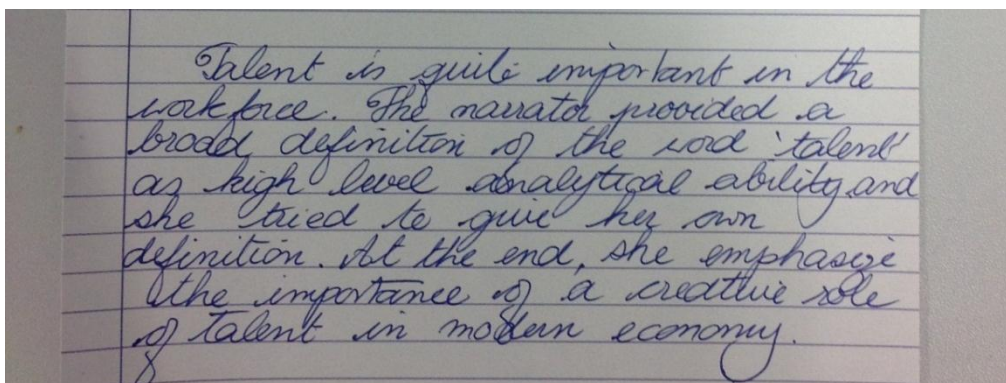 Talent is quite important in the
workforce. The narrator provided a
broad definition of the word 'talent'
as high level analytical ability and
she tried to give her own
definition. At the end, she emphasize
the importance of a creative role
of talent in modern economy.